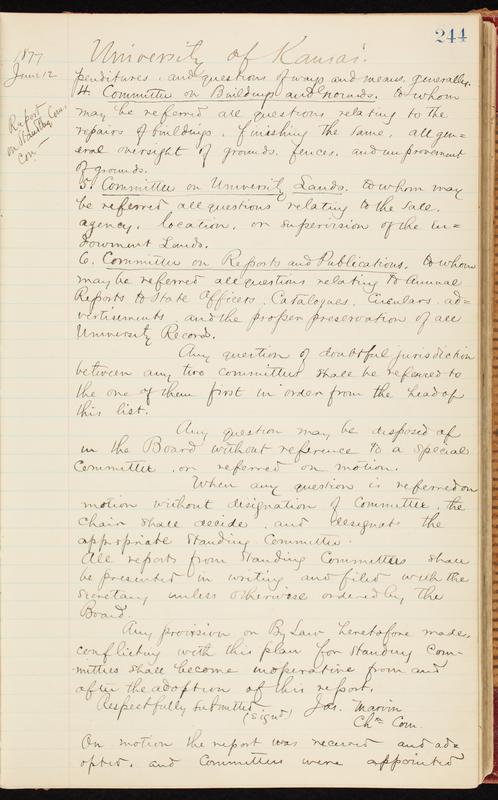 244
1877
June 12
University of Kansas.
Report
on Standing Com
Com
penditures, and questions of ways and means, generally.
4. Committee on Buildings and Grounds. to whom
may be referred all questions relating to the
repairs of buildings, finishing the same, all gen=
eral oversight of grounds, fences, and improvement
of grounds.
5. Committee on University Lands. to whom may
be referred all questions relating to the sale,
agency, location, or supervision of the in=
dowment Lands.
6. Committee on Reports and Publications. to whom
may be referred all questions relating to Annual
Reports to State Officers, Catalogues, Circulars, ad=
vertisements, and the proper preservation of all
University Records.
Any question of doubtful jurisdiction
between any two committees shall be referred to
the one of them first in order from the head of
this list.
Any question may be disposed of
in the Board without reference to a special
Committee, or referred on motion.
When any question is referred on
motion without designation of Committee, the
Chair shall decide, and designate the
appropriate Standing Committee.
All reports from Standing Committees shall
be presented in writing and filed with the
Secretary unless otherwise ordered by the
Board.
Any provision or By Law heretofore made,
conflicting with this plan for Standing Com-
mittees shall become inoperative from and
after the adoption of this report.
Respectfully submitted
(Signd) Jas. Marvin
Chn Com.
On motion the report was received and ad=
opted, and Committees were appointed